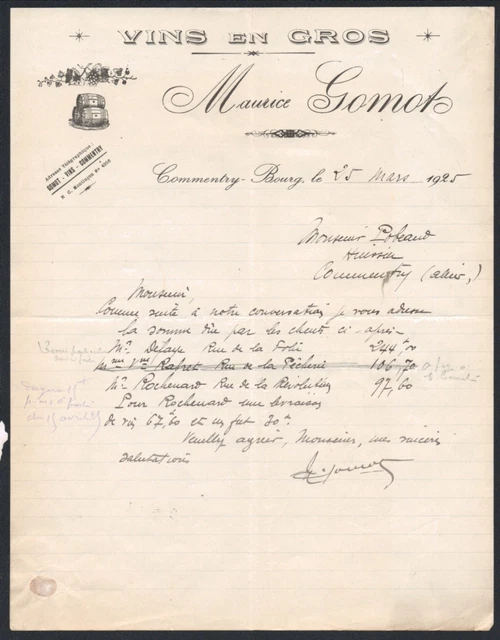 VINS EN GROS
Maurice Gomot
Adresse Télégraphique
GOMOT - VINS - COMMENTRY
R. C. Montluçon No
Commentry-Bourg, le 25 Mars 1925
Monsieur
Huissier
Commentry (Allier)
Monsieur,
Comme suite à notre conversation je vous adresse
la somme due par les clients ci-après
Mr Delaye Rue de la 244
Rue de la Pêcherie 106,70
Mr Rochenard Rue de la Révolution 97,60
Pour Rochenard une livraison
de vin 67,60 et un fut 30
Veuillez agréer, Monsieur, mes sincères
salutations
M. Gomot